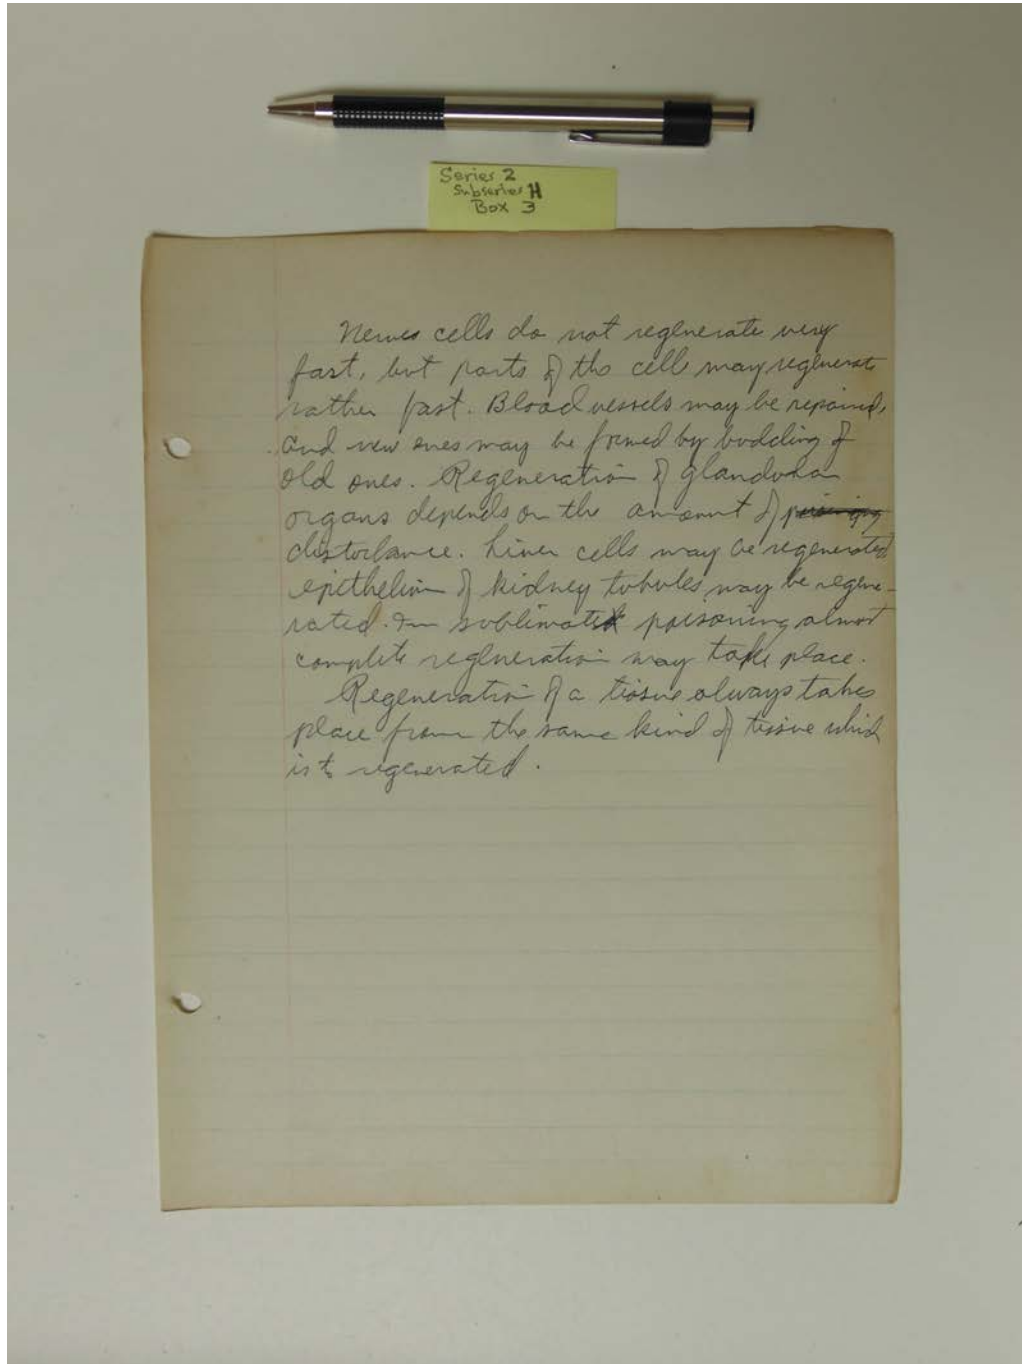 Series 2
Subseries H
Box 3
Nerves cells do not regenerate very
fast, but parts of the cell may regenerate
rather fast. Blood vessels may be repaired,
and new ones may be formed by budding of
old ones. Regeneration of glandular
organs depends on the amount of
disturbance. Liver cells may be regenerated
epithelium of kidney tubules may be regene-
rated. In sublimate poisoning almost
complete regeneration may take place.
Regeneration of a tissue always takes
place from the same kind of tissue which
is to regenerated.